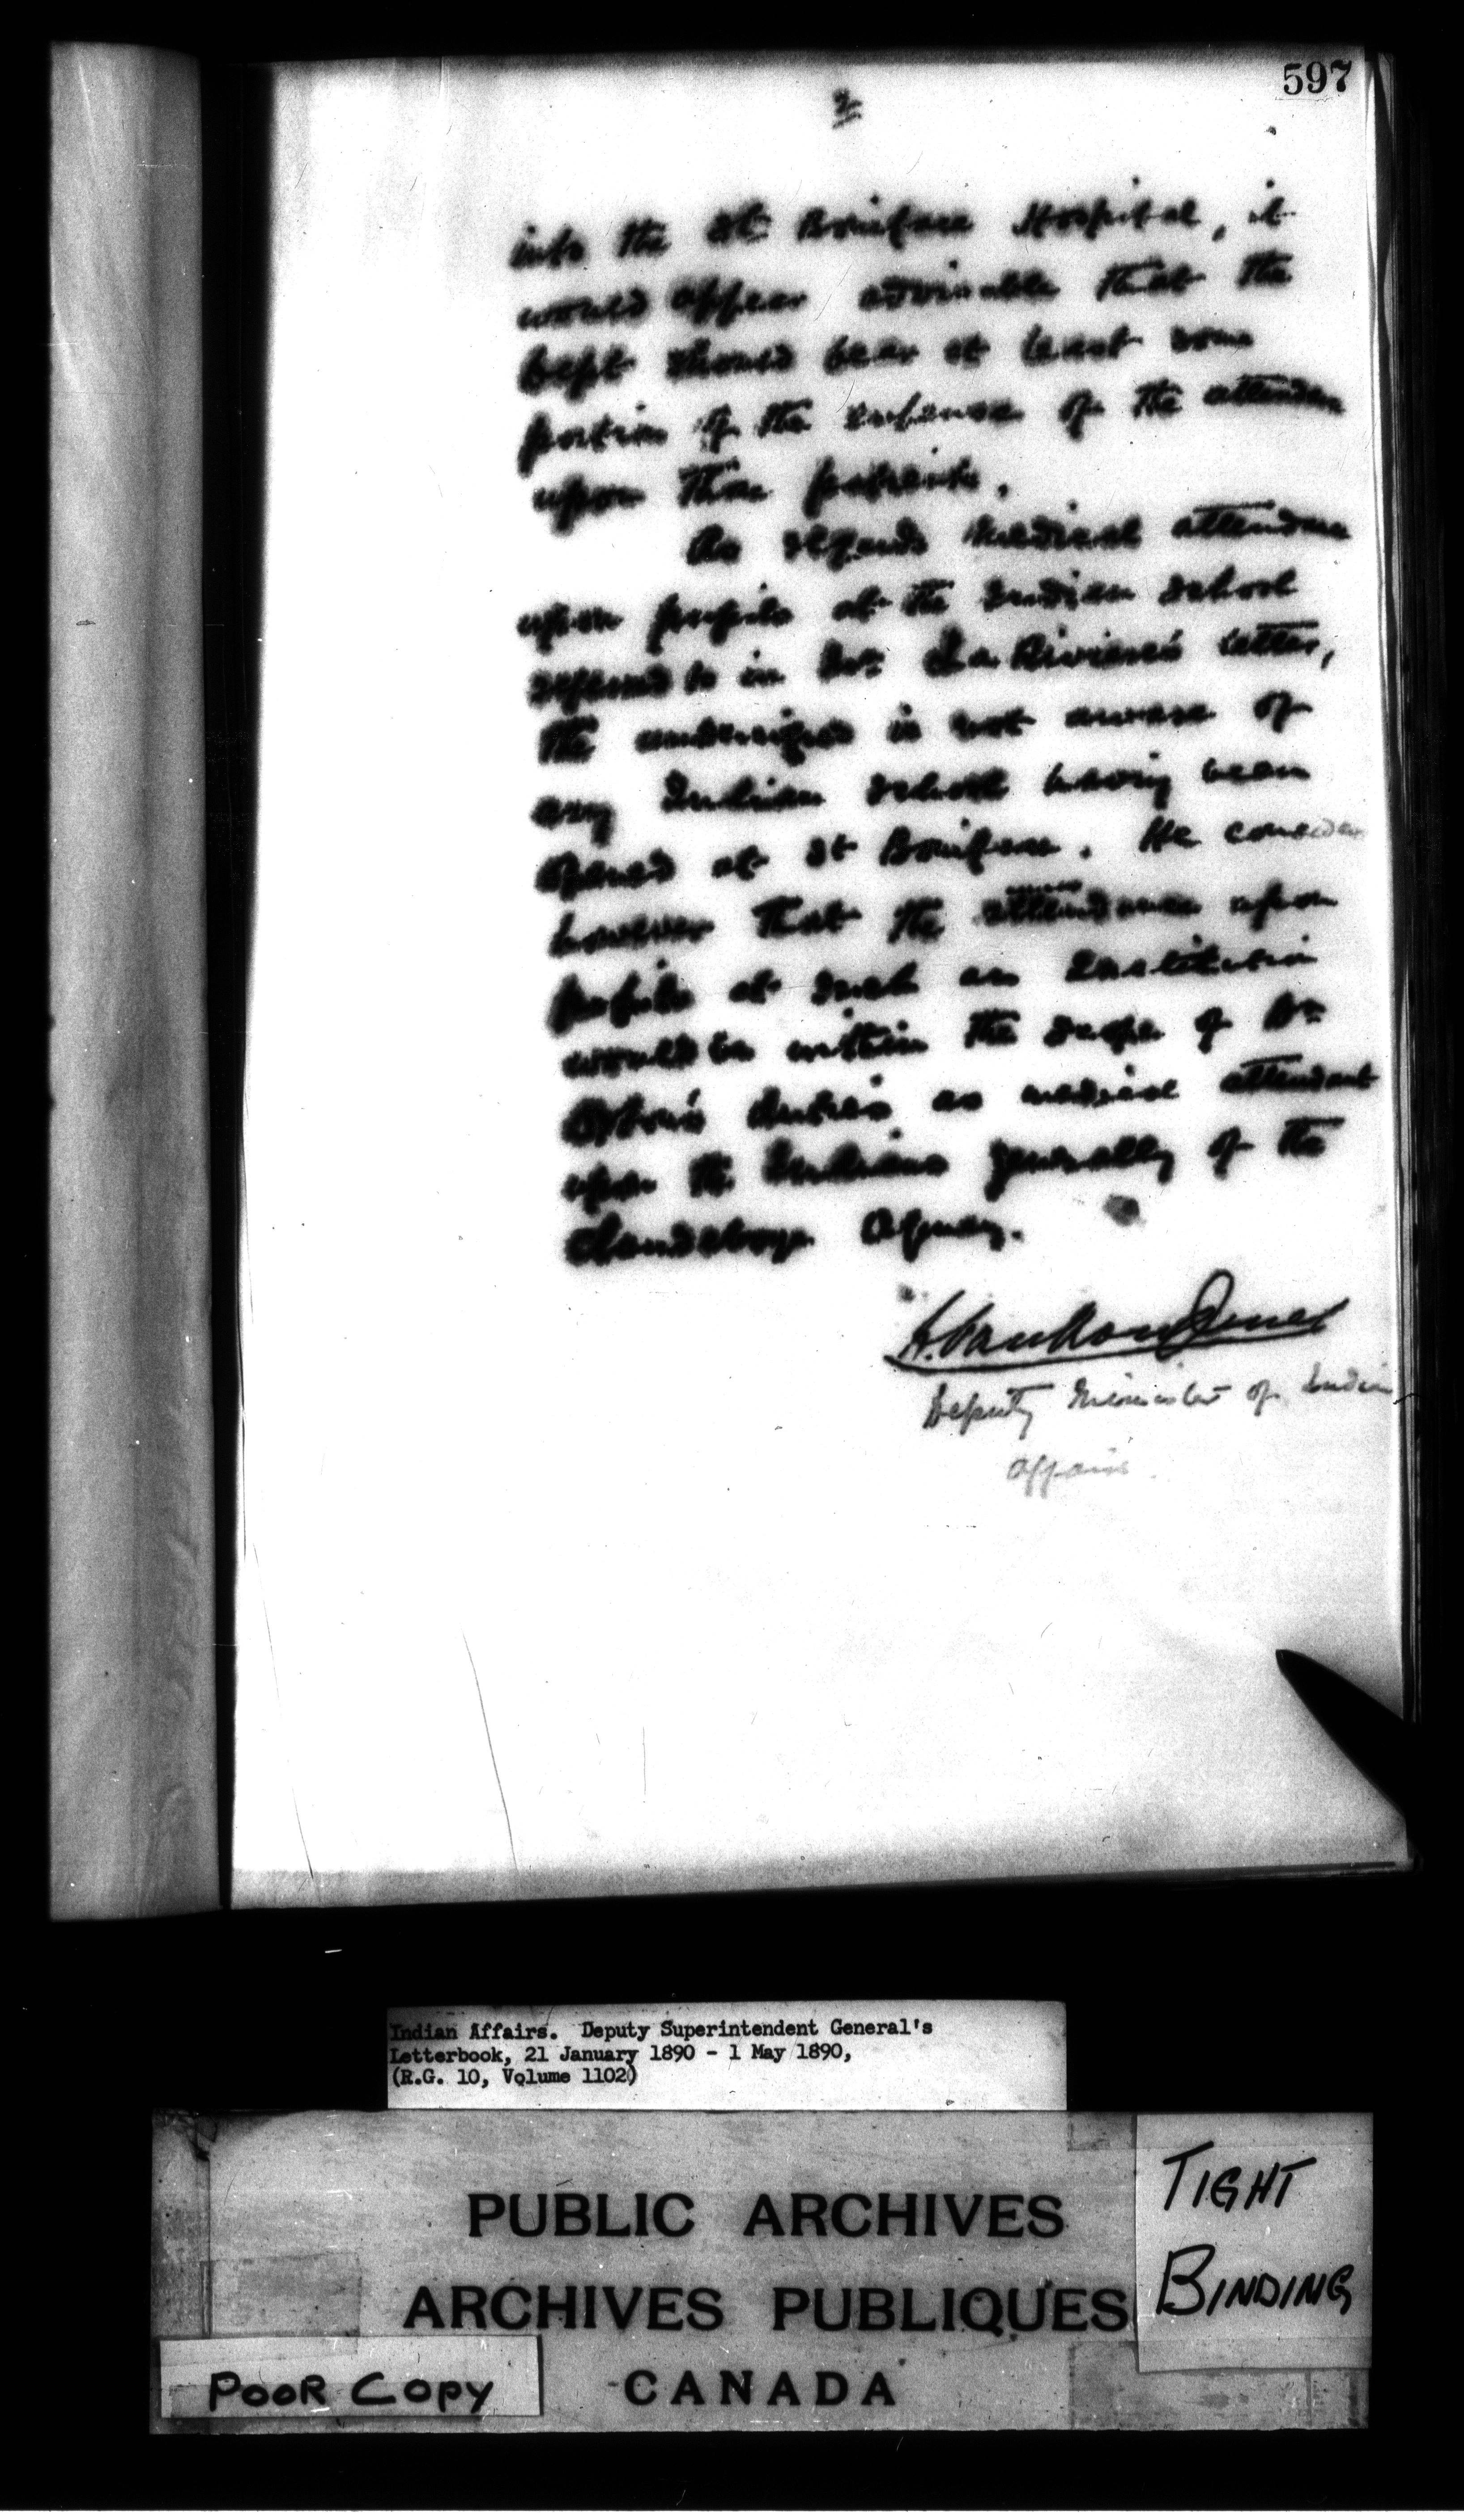 597
2
into the St. Boniface Hospital, it
would appear advisable that the
Dept should bear at least some
portion of the expense of the attendance
upon these patients.
As regards medical attendance
upon pupils at the Indian School
referred to in Dr. La Riviere's letter,
the undersigned is not aware of
any Indian School having been
opened at St Boniface. He considers
however that the attendance upon
pupils at such an Institution
would be within the scope of Dr.
Orton's duties as medical attendant
upon the Indians generally of the
Clandeboye Agency.
L. Vankoughnet
Deputy Minister of Indian
Affairs.
Indian Affairs. Deputy Superintendent General's
Letterbook, 21 January 1890 - 1 May 1890,
(R.G. 10, Volume 1102)
PUBLIC ARCHIVES
ARCHIVES PUBLIQUES
CANADA
TIGHT
BINDING
POOR COPY